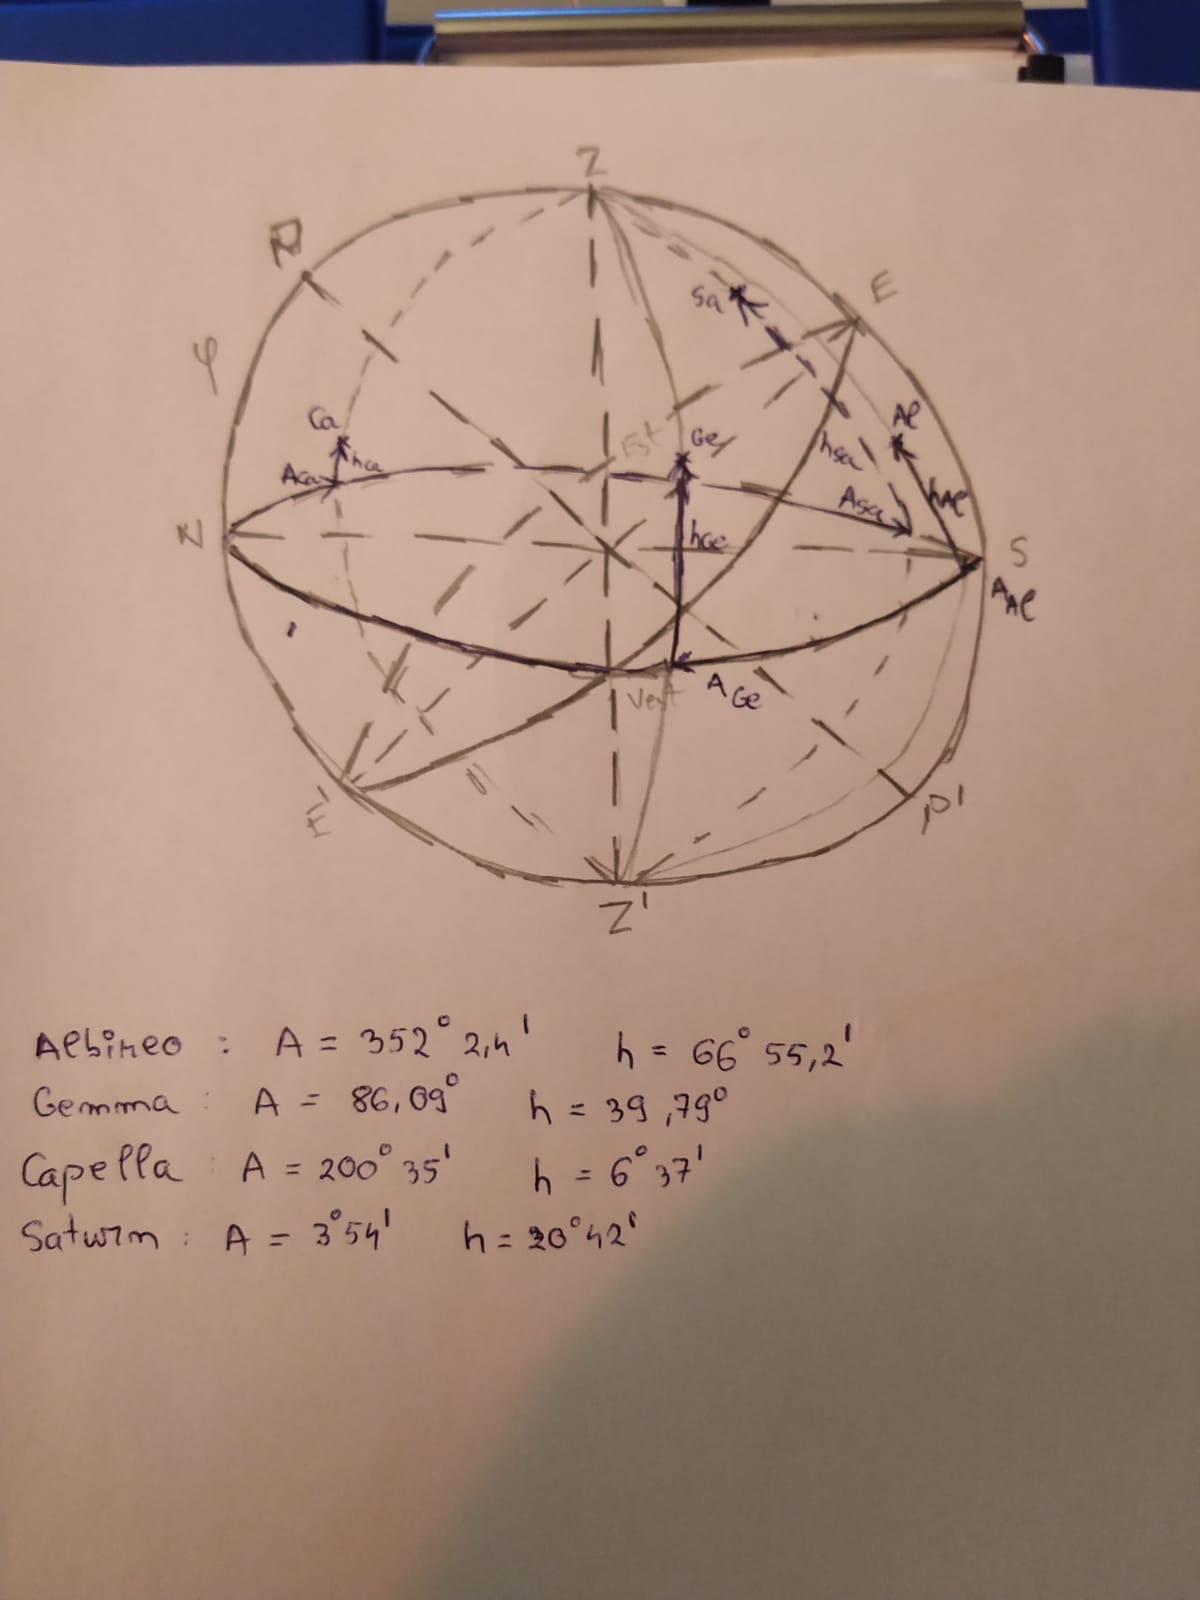 Z
P
E
φ
Sa
Ca
Al
Est
Ge
hca
Aca
hsa
Asa
hAl
N
hGe
S
AAl
AGe
Vest
E'
P'
Z'
Albireo : A = 352° 2,4' h = 66° 55,2'
Gemma : A = 86,09° h = 39,79°
Capella : A = 200° 35' h = 6° 37'
Saturn : A = 3°54' h = 20°42'